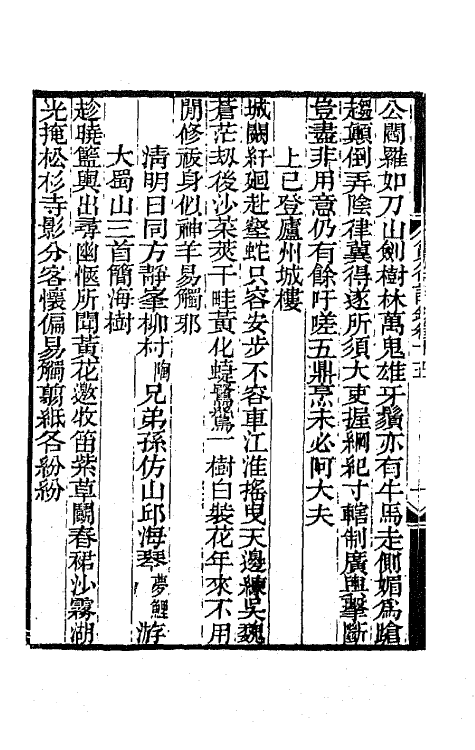 公閻羅如刀山劍樹林萬鬼雄牙鬚亦有牛馬走側媚為蹌
趨顛倒弄陰律冀得遂所須大吏握綱紀寸轄制廣輿擊斷
豈盡非用意仍有餘吁嗟五鼎烹未必阿大夫
上巳登廬州城樓
城闕紆廻赴壑蛇只容安步不容車江淮搖曳天邊練吳魏
蒼茫刼後沙菜莢千畦黃化蟯鷺鷥一樹白裝花年來不用
閒修祓身似神羊易觸邪
清明日同方靜峯柳村陶兄弟孫仿山邱海琴夢鯉游
大蜀山三首簡海樹
趁曉籃輿出尋幽愜所聞黃花邀牧笛紫草鬬春裙沙霧湖
光掩松杉寺影分客懷偏易觸翦紙各紛紛